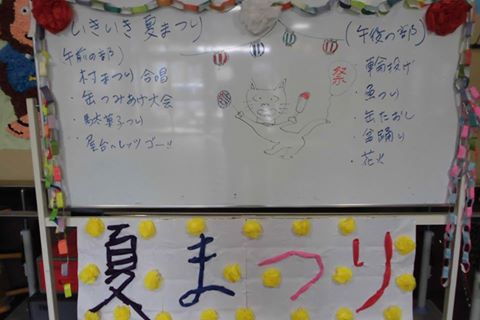 いきいき夏まつり
午前の部)
村まつり 合唱
・缶つみあげ大会
・駄菓子つり
・屋台へレッツゴー!!
祭
(午後の部)
・輪投げ
・魚つり
・缶たおし
・盆踊り
・花火
夏まつり